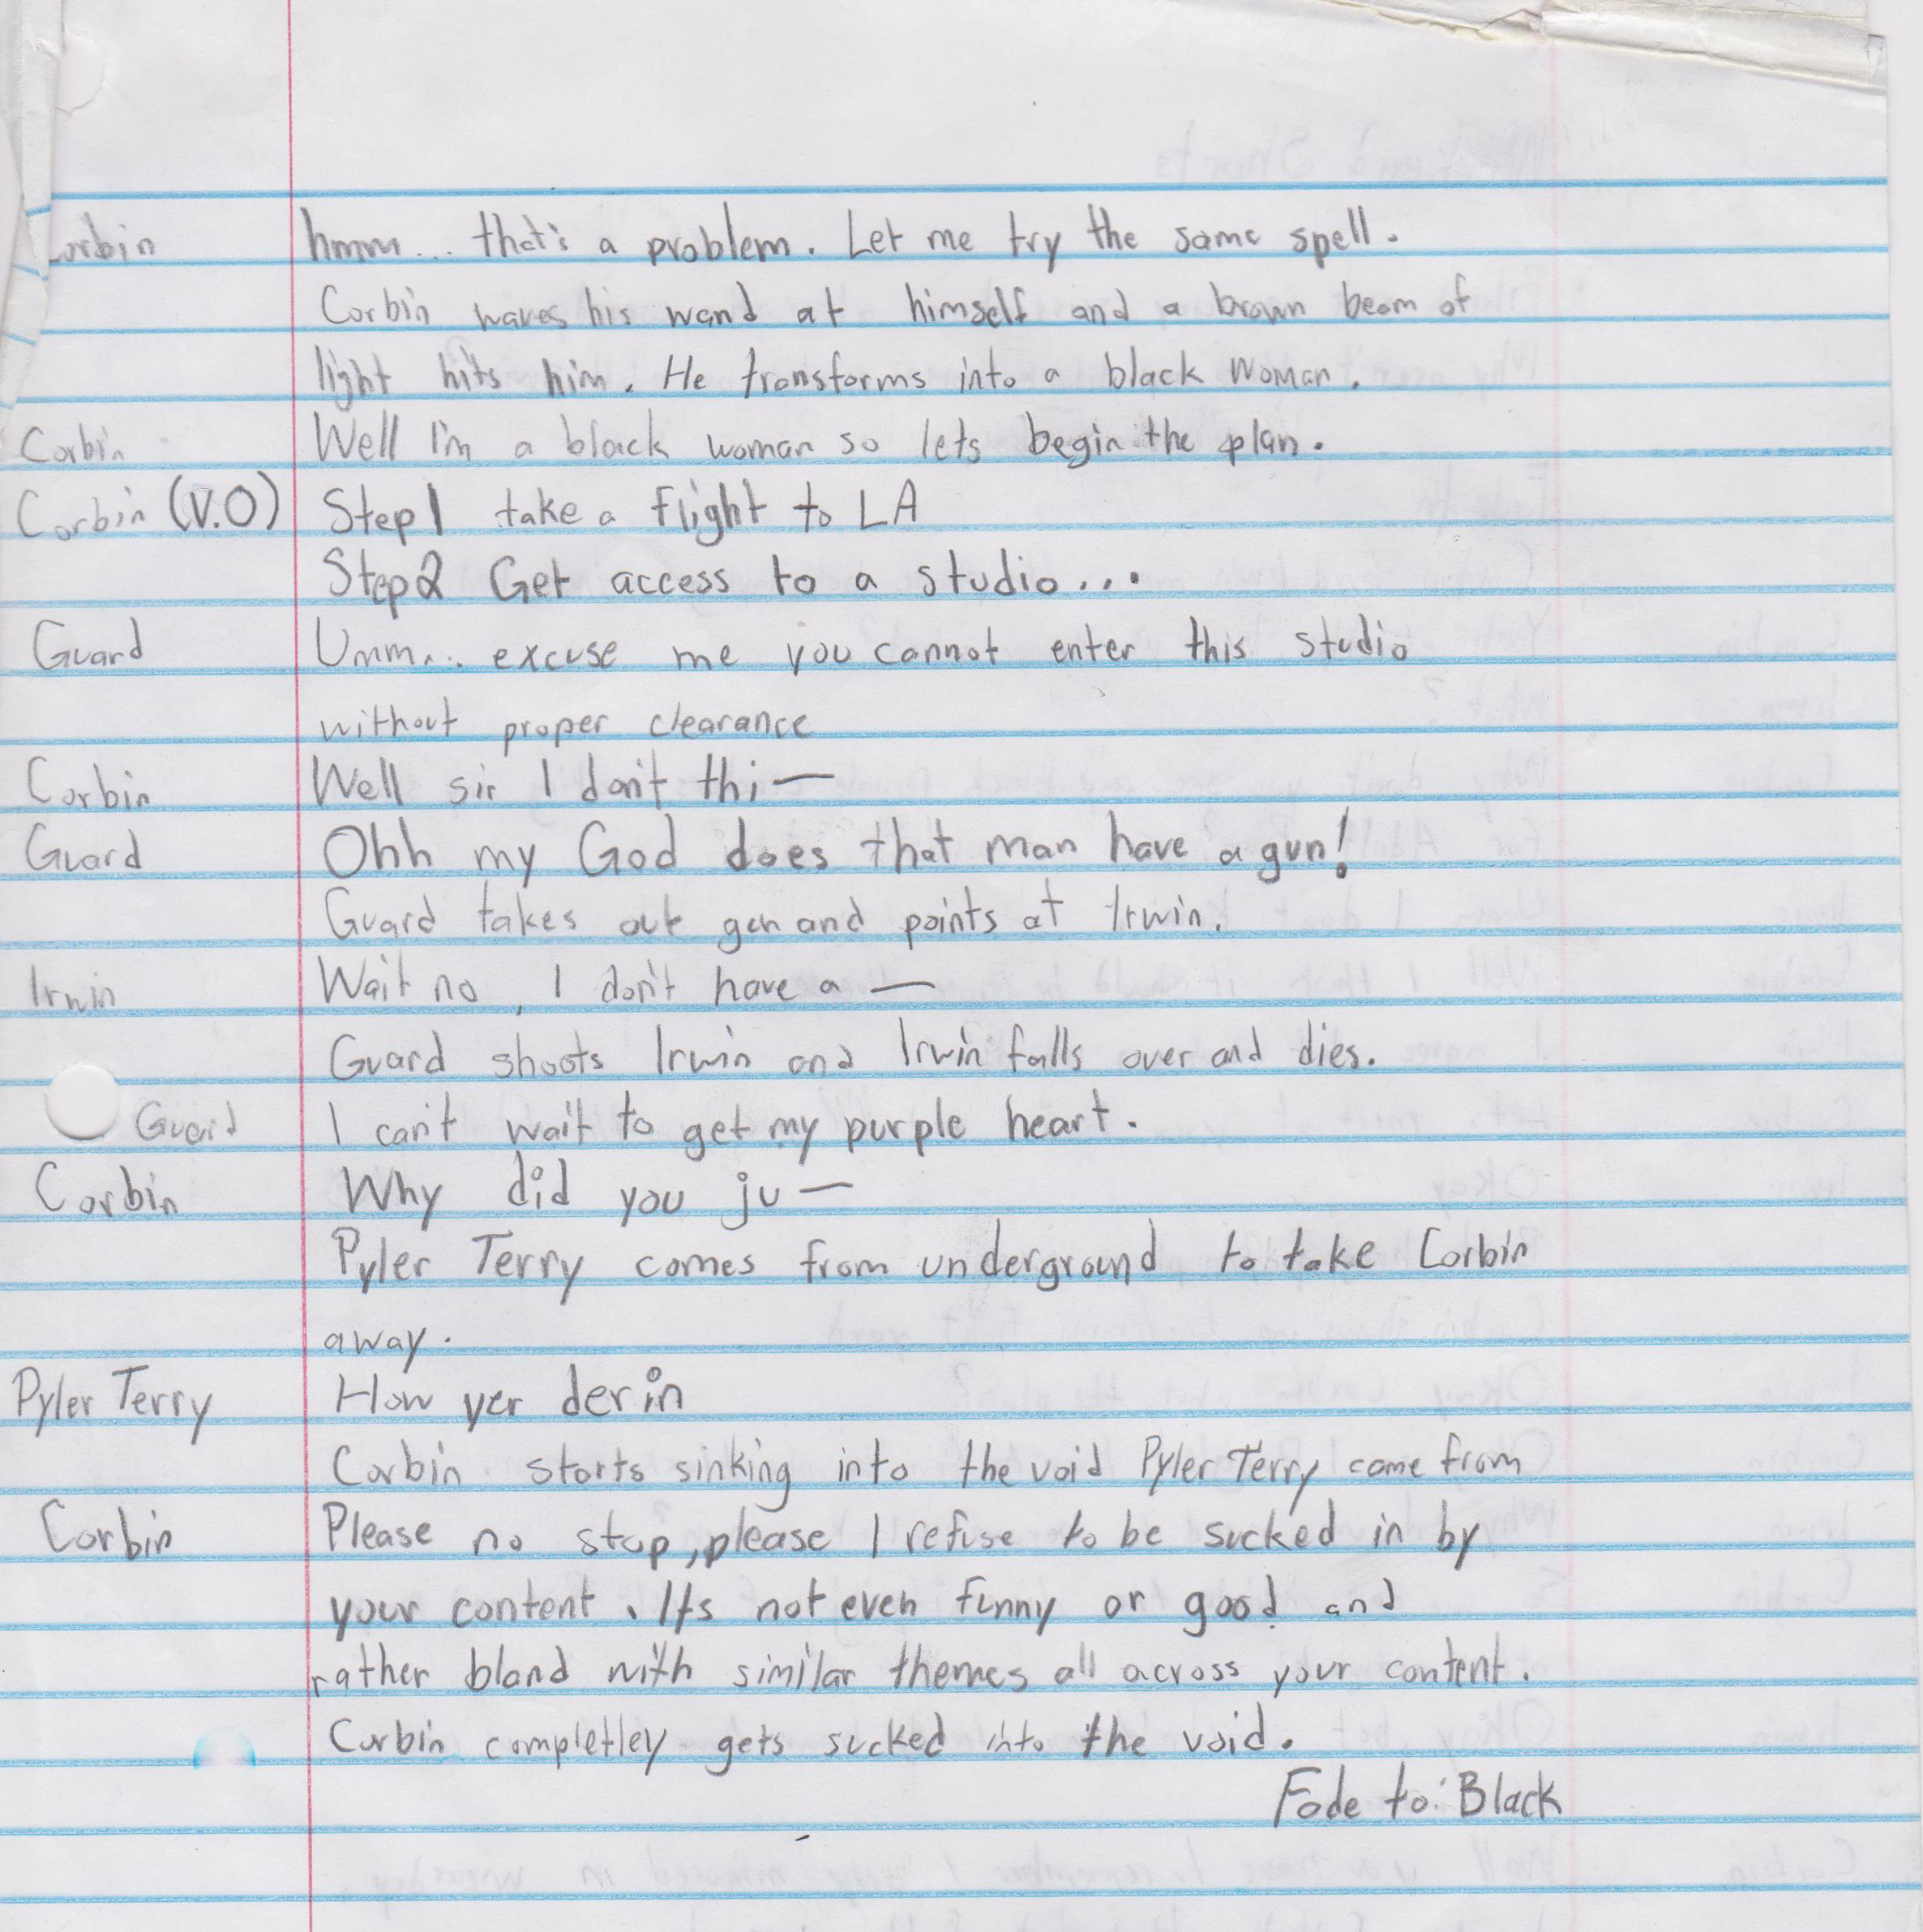 Corbin hmm... that's a problem. Let me try the same spell.
Corbin waves his wand at himself and a brown beam of
light hits him. He transforms into a black woman.
Corbin Well I'm a black woman so lets begin the plan.
Corbin (V.O) Step 1 take a flight to LA
Step 2 Get access to a studio...
Guard Umm... excuse me you cannot enter this studio
without proper clearance
Corbin Well sir I don't thi—
Guard Ohh my God does that man have a gun!
Guard takes out gun and points at Irwin.
Irwin Wait no, I don't have a —
Guard shoots Irwin and Irwin falls over and dies.
Guard I can't wait to get my purple heart.
Corbin Why did you ju—
Pyler Terry comes from underground to take Corbin
away.
Pyler Terry How yer derin
Corbin starts sinking into the void Pyler Terry came from
Corbin Please no stop, please I refuse to be sucked in by
your content. Its not even funny or good and
rather bland with similar themes all across your content.
Corbin completley gets sucked into the void.
Fade to: Black